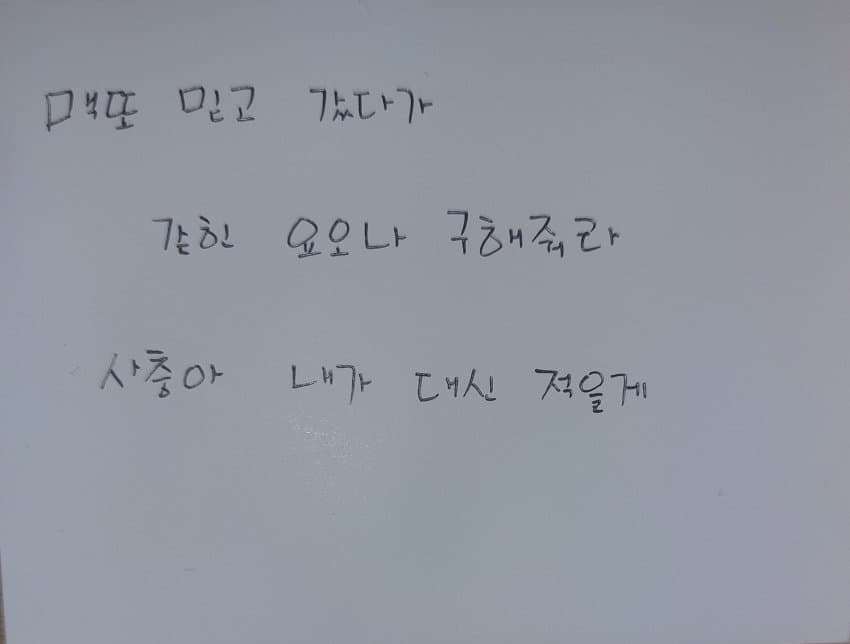 맥또 믿고 갔다가
갇힌 요오나 구해줘라
사충아 내가 대신 적을게